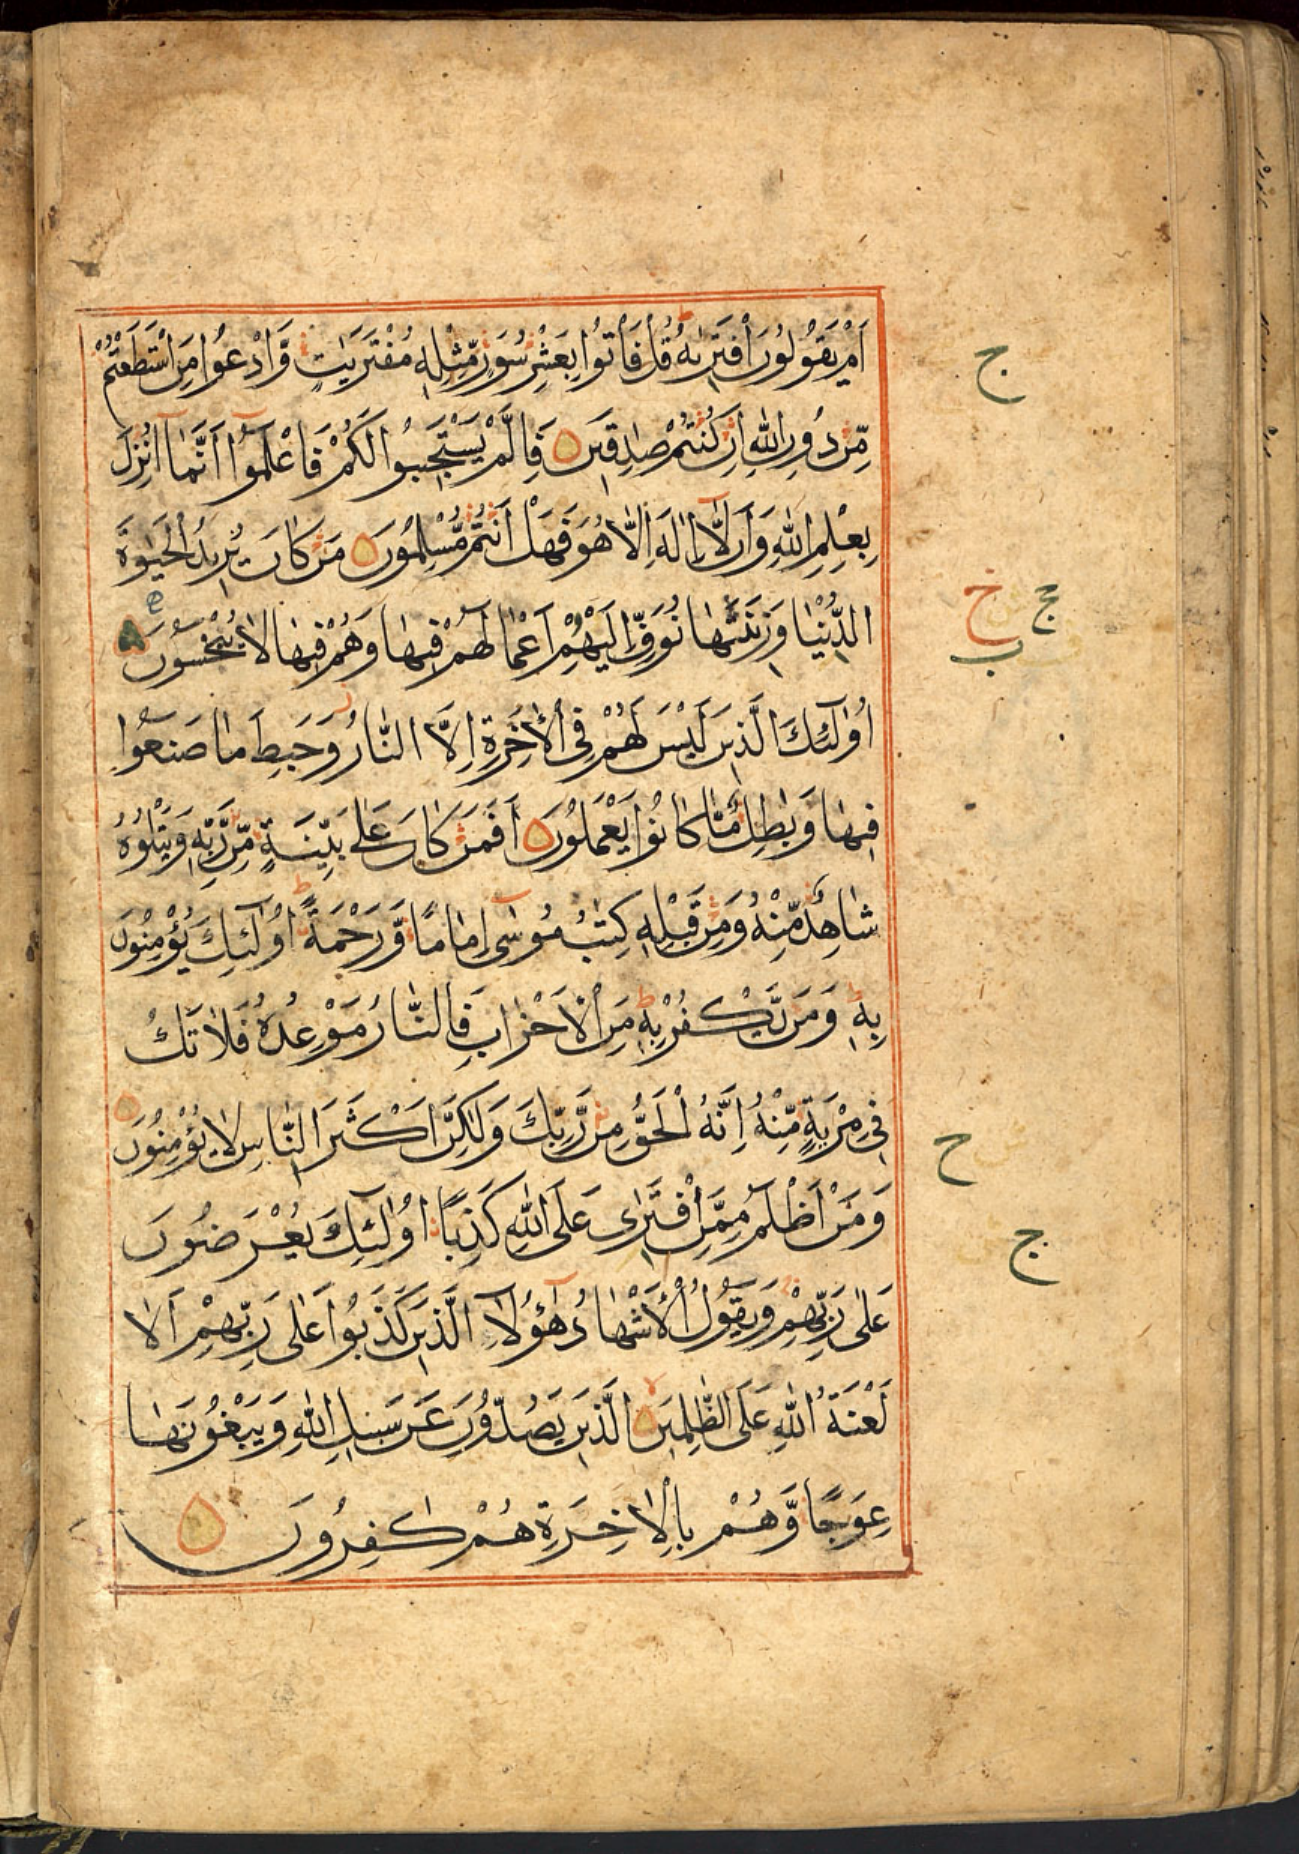 اَمْ يَقُوْلُوْنَ افْتَرٰىهُ ؕ قُلْ فَاْتُوْا بِعَشْرِ سُوَرٍ مِّثْلِهٖ مُفْتَرَيٰتٍ وَّادْعُوْا مَنِ اسْتَطَعْتُمْ
مِّنْ دُوْنِ اللّٰهِ اِنْ كُنْتُمْ صٰدِقِيْنَ فَاِلَّمْ يَسْتَجِيْبُوْا لَكُمْ فَاعْلَمُوْٓا اَنَّمَآ اُنْزِلَ
بِعِلْمِ اللّٰهِ وَاَنْ لَّآ اِلٰهَ اِلَّا هُوَ فَهَلْ اَنْتُمْ مُّسْلِمُوْنَ مَنْ كَانَ يُرِيْدُ الْحَيٰوةَ
الدُّنْيَا وَزِيْنَتَهَا نُوَفِّ اِلَيْهِمْ اَعْمَالَهُمْ فِيْهَا وَهُمْ فِيْهَا لَا يُبْخَسُوْنَ
اُولٰٓئِكَ الَّذِيْنَ لَيْسَ لَهُمْ فِي الْاٰخِرَةِ اِلَّا النَّارُ وَحَبِطَ مَا صَنَعُوْا
فِيْهَا وَبٰطِلٌ مَّا كَانُوْا يَعْمَلُوْنَ اَفَمَنْ كَانَ عَلٰى بَيِّنَةٍ مِّنْ رَّبِّهٖ وَيَتْلُوْهُ
شَاهِدٌ مِّنْهُ وَمِنْ قَبْلِهٖ كِتٰبُ مُوْسٰٓى اِمَامًا وَّرَحْمَةً ؕ اُولٰٓئِكَ يُؤْمِنُوْنَ
بِهٖ ؕ وَمَنْ يَّكْفُرْ بِهٖ مِنَ الْاَحْزَابِ فَالنَّارُ مَوْعِدُهٗ فَلَا تَكُ
فِيْ مِرْيَةٍ مِّنْهُ اِنَّهُ الْحَقُّ مِنْ رَّبِّكَ وَلٰكِنَّ اَكْثَرَ النَّاسِ لَا يُؤْمِنُوْنَ
وَمَنْ اَظْلَمُ مِمَّنِ افْتَرٰى عَلَى اللّٰهِ كَذِبًا اُولٰٓئِكَ يُعْرَضُوْنَ
عَلٰى رَبِّهِمْ وَيَقُوْلُ الْاَشْهَادُ هٰٓؤُلَآءِ الَّذِيْنَ كَذَبُوْا عَلٰى رَبِّهِمْ اَلَا
لَعْنَةُ اللّٰهِ عَلَى الظّٰلِمِيْنَ الَّذِيْنَ يَصُدُّوْنَ عَنْ سَبِيْلِ اللّٰهِ وَيَبْغُوْنَهَا
عِوَجًا وَّهُمْ بِالْاٰخِرَةِ هُمْ كٰفِرُوْنَ